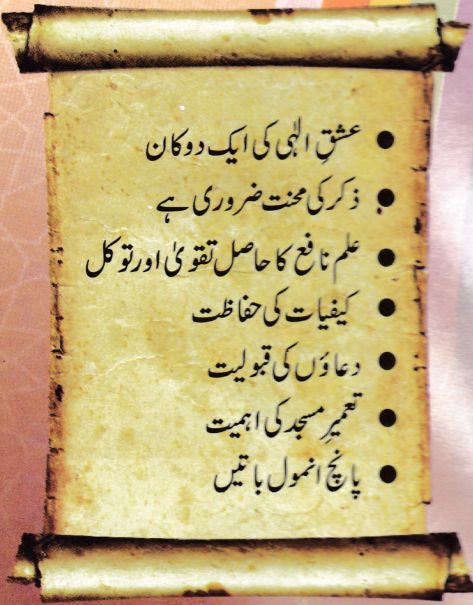 ● عشقِ الٰہی کی ایک دوکان
● ذکر کی محنت ضروری ہے
● علم نافع کا حاصل تقویٰ اور توکل
● کیفیات کی حفاظت
● دعاؤں کی قبولیت
● تعمیرِ مسجد کی اہمیت
● پانچ انمول باتیں